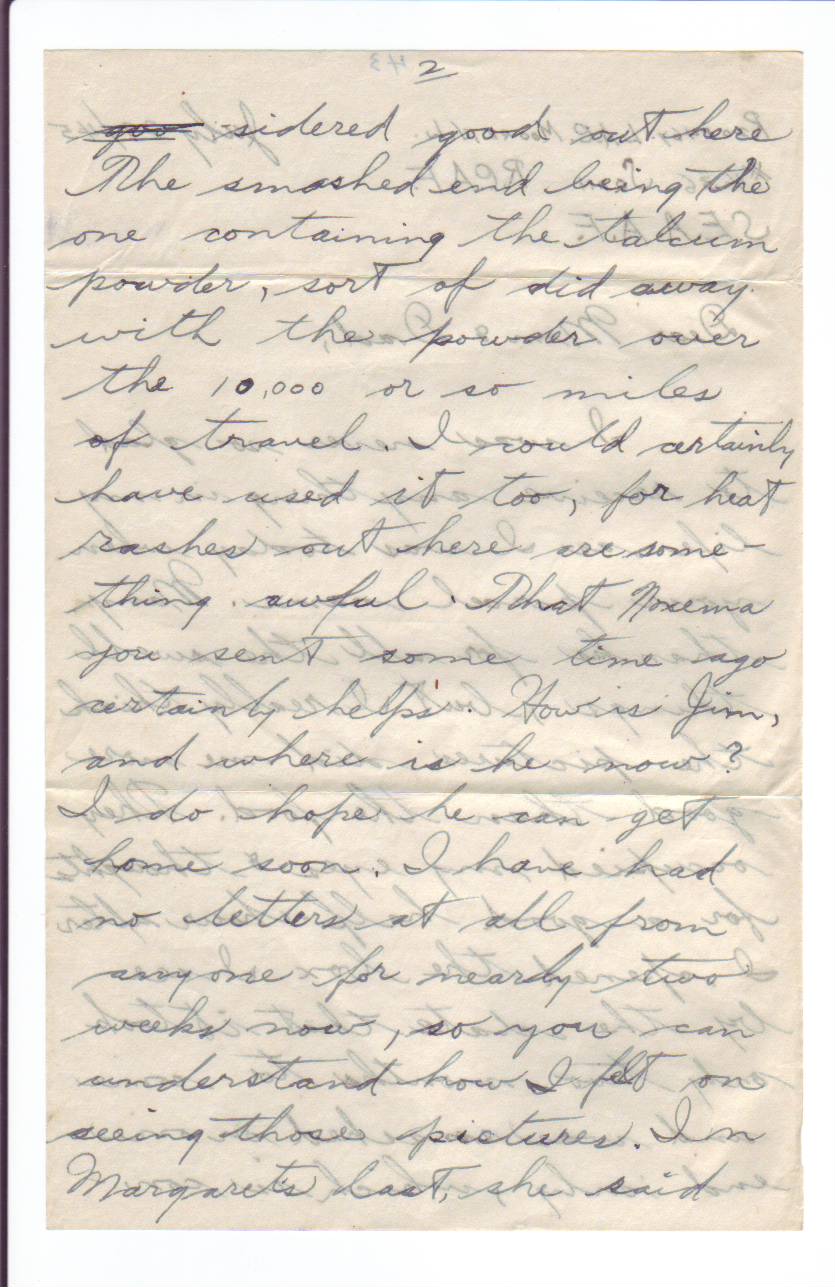 2
goo sidered good out here
The smashed end being the
one containing the talcum
powder, sort of did away
with the powder over
the 10,000 or so miles
of travel. I could certainly
have used it too, for heat
rashes out here are some-
thing awful. That Noxema
you sent some time ago
certainly helps. How is Jim,
and where is he now?
I do hope he can get
home soon. I have had
no letters at all from
anyone for nearly two
weeks now, so you can
understand how I felt on
seeing those pictures. In
Margaret's last, she said